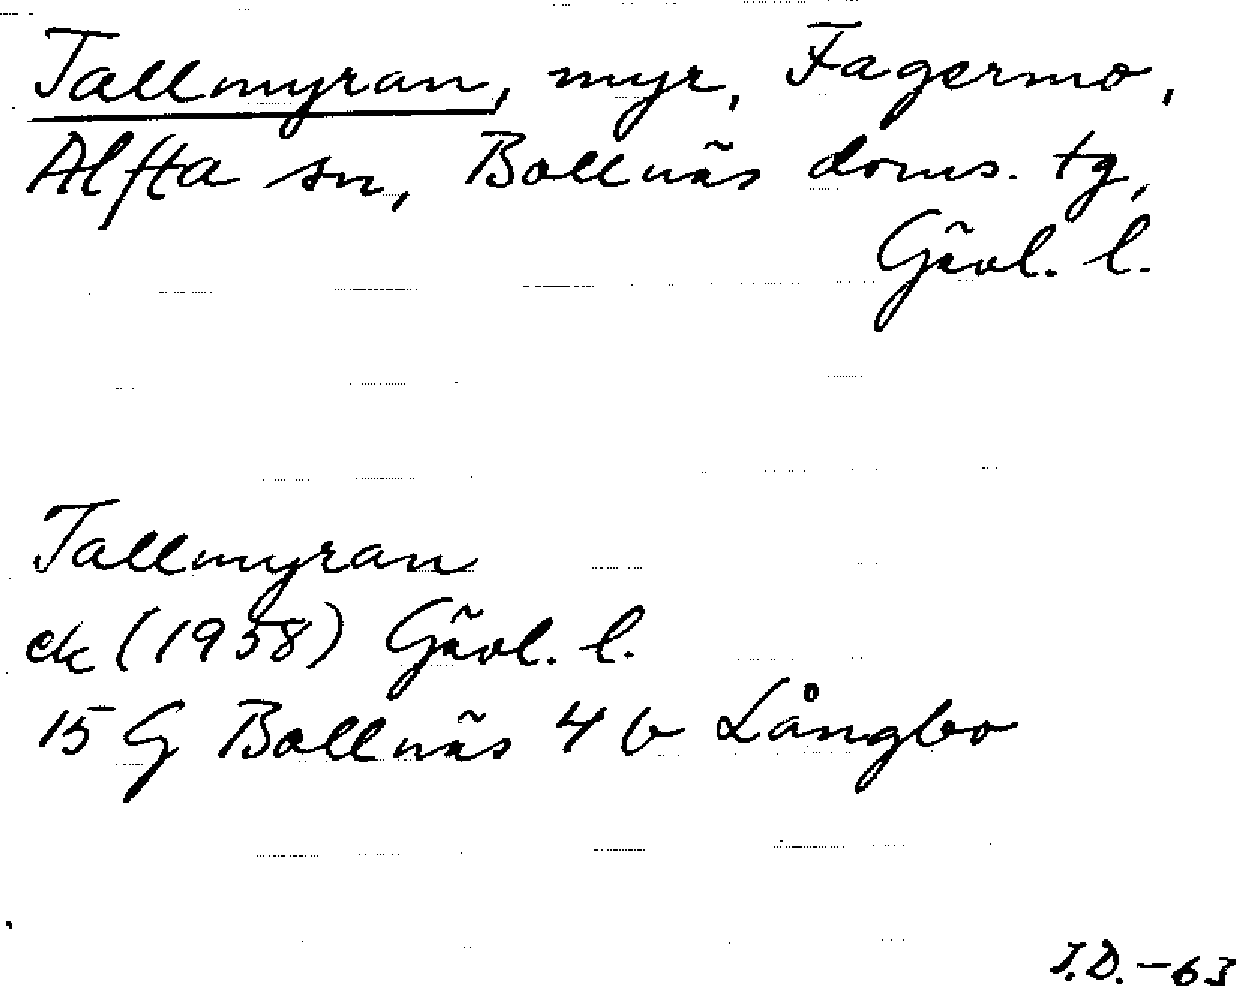 Tallmyran, myr, Fagermo,
Alfta sn, Bollnäs doms. tg,
Gävl. l.
Tallmyran
ek (1958) Gävl. l.
15 G Bollnäs 4 b Långbo
I.D. -63